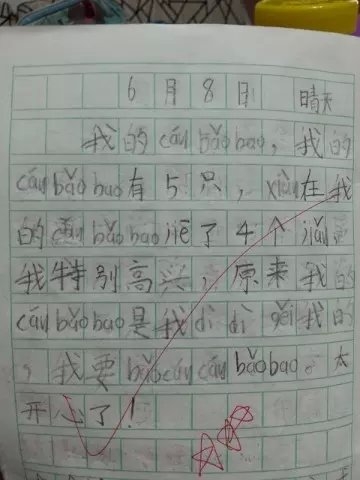 6月8日 晴天
我的cán bǎo bao，我的
cán bǎo bao有5只，xiàn在我
的cán bǎo bao jiē了4个jiǎn
我特别高兴，原来我的
cán bǎo bao是我dì dì gěi我的
，我要bǎo cán cán bǎo bao。太
开心了！